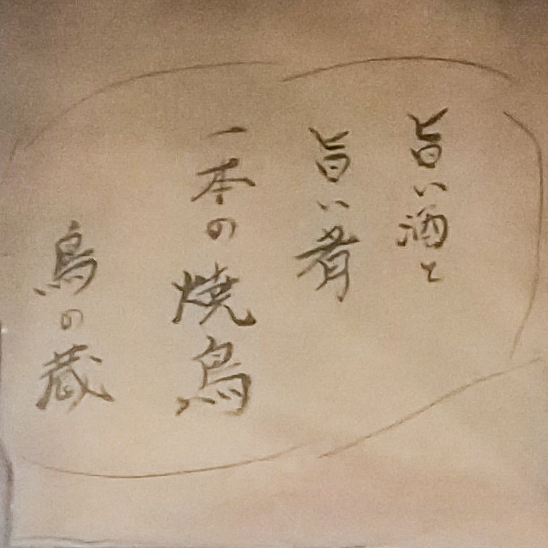 旨い酒と
旨い肴
一本の焼鳥
鳥の蔵